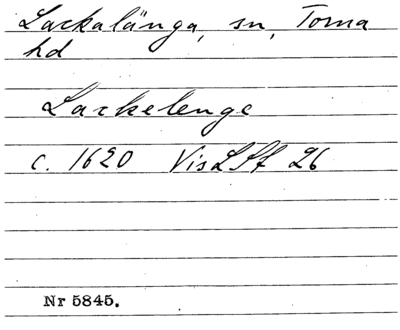 Lackalänga, sn, Torna
hd
Lackelenge
c. 1620 VisLSf 26
Nr 5845.